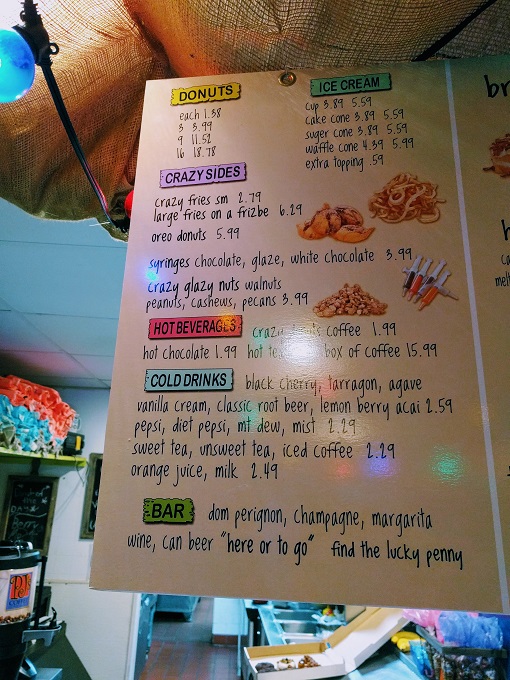 DONUTS
each 1.38
3 3.99
9 11.52
16 18.78
ICE CREAM
cup 3.89 5.59
cake cone 3.89 5.59
suger cone 3.89 5.59
waffle cone 4.39 5.99
extra topping .59
CRAZY SIDES
crazy fries sm 2.79
large fries on a frizbe 6.29
oreo donuts 5.99
syringes chocolate, glaze, white chocolate 3.99
crazy glazy nuts walnuts
peanuts, cashews, pecans 3.99
HOT BEVERAGES crazy coffee 1.99
hot chocolate 1.99 hot box of coffee 15.99
COLD DRINKS black cherry, tarragon, agave
vanilla cream, classic root beer, lemon berry acai 2.59
pepsi, diet pepsi, mt dew, mist 2.29
sweet tea, unsweet tea, iced coffee 2.29
orange juice, milk 2.49
BAR dom perignon, champagne, margarita
wine, can beer "here or to go" find the lucky penny
br